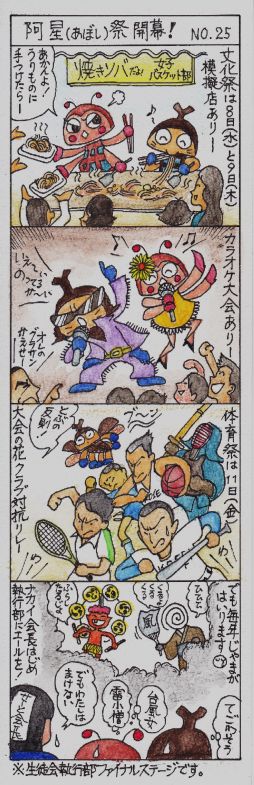 阿星(あぼし)祭開幕！ NO.25
文化祭は8日(水)と9日(木)
模擬店ありー
焼きソバだよ！
女子
バスケット部
あかんよ！
うりものに
手つけたらー
カラオケ大会ありー
いえーい
のってるかーい
オレの
グラサン
かえせー
体育祭は11日(金)
ブーン
とぶの
反則！
大会の花クラブ対抗リレー
でも毎年、じゃまが
はいります
ひひひ
風
てごわそう
台風女
雷小僧
でもわたしは
まけない
ナガイ会長はじめ
執行部にエールを！
※生徒会執行部ファイナルステージです。